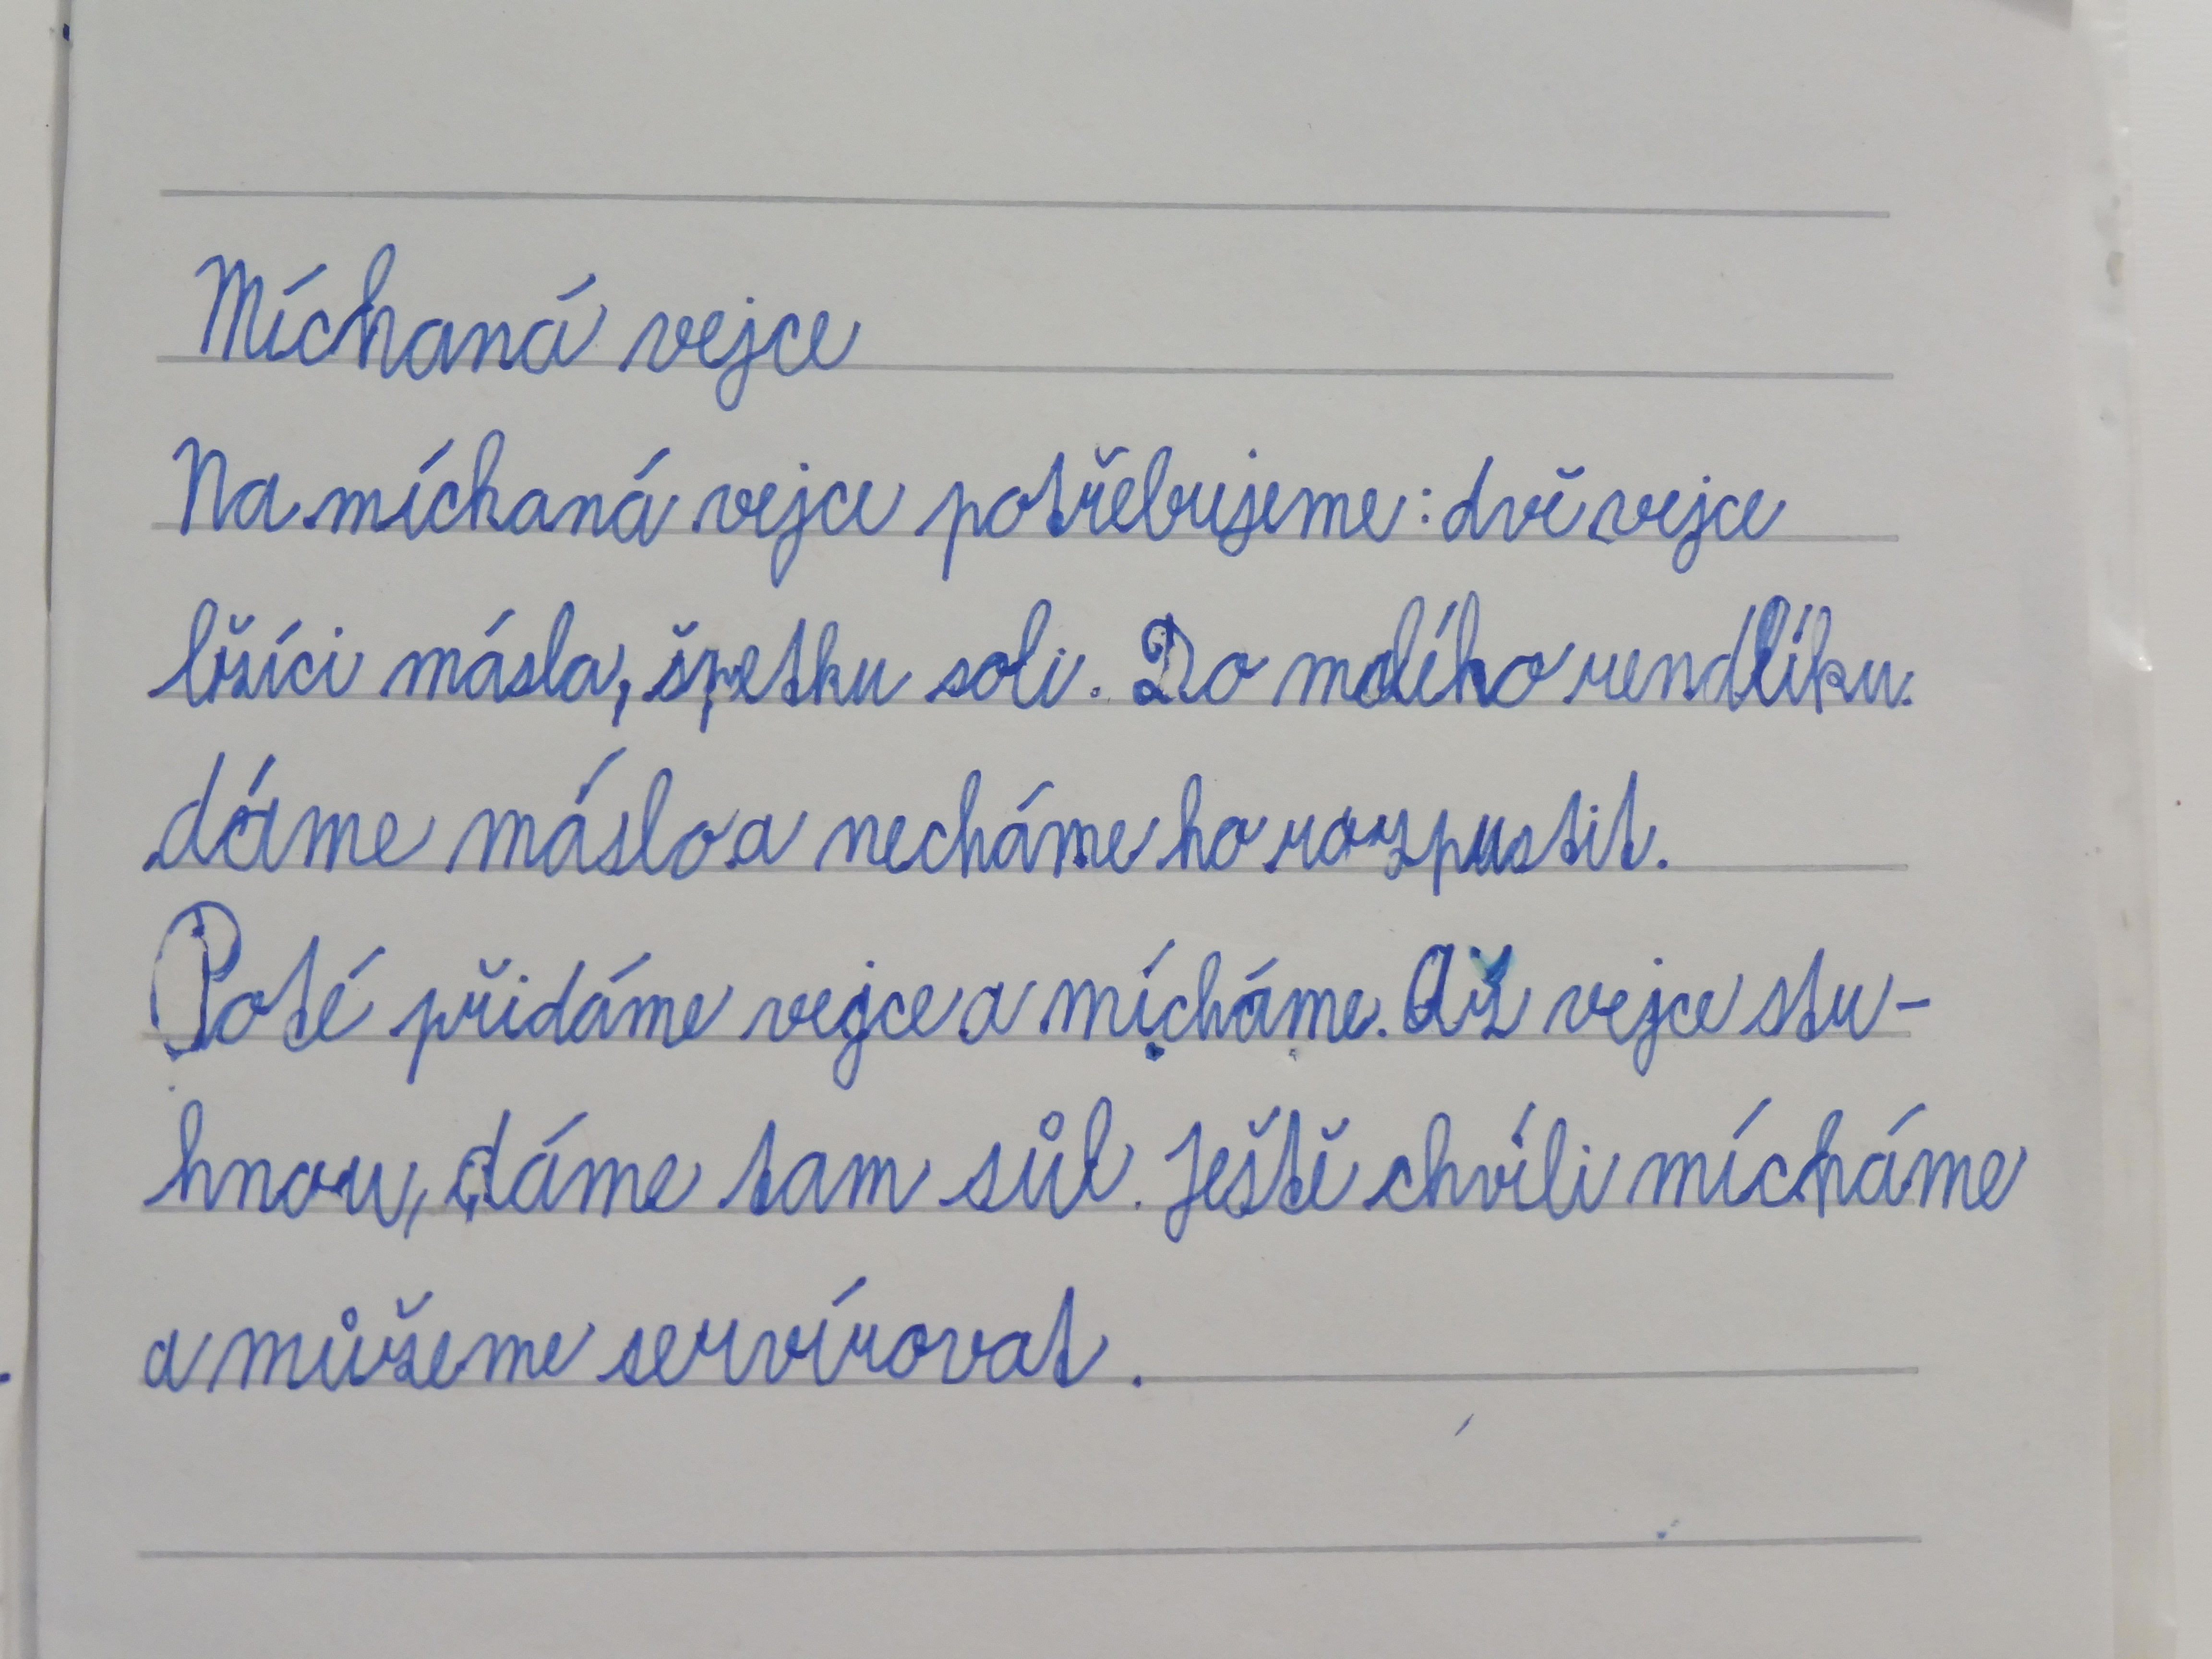 Míchaná vejce
Na míchaná vejce potřebujeme: dvě vejce
lžíci másla, špetku soli. Do malého rendlíku.
dáme máslo a necháme ho rozpustit.
Poté přidáme vejce a mícháme. Až vejce stu-
hnou, dáme tam sůl. Ještě chvíli mícháme
a můžeme servírovat.